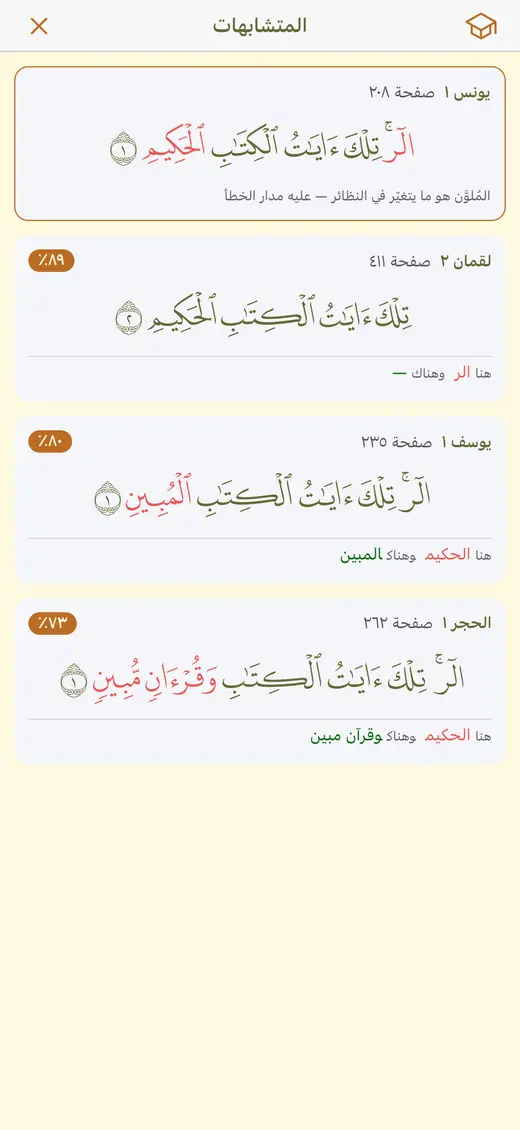 المتشابهات
يونس ١ صفحة ٢٠٨
الٓرۚ تِلْكَ ءَايَٰتُ ٱلْكِتَٰبِ ٱلْحَكِيمِ ١
المُلوَّن هو ما يتغيّر في النظائر — عليه مدار الخطأ
لقمان ٢ صفحة ٤١١ ٪٨٩
تِلْكَ ءَايَٰتُ ٱلْكِتَٰبِ ٱلْحَكِيمِ ٢
هنا الر وهناك —
يوسف ١ صفحة ٢٣٥ ٪٨٠
الٓرۚ تِلْكَ ءَايَٰتُ ٱلْكِتَٰبِ ٱلْمُبِينِ ١
هنا الحكيم وهناك المبين
الحجر ١ صفحة ٢٦٢ ٪٧٣
الٓرۚ تِلْكَ ءَايَٰتُ ٱلْكِتَٰبِ وَقُرْءَانٍ مُّبِينٍ ١
هنا الحكيم وهناك وقرآن مبين